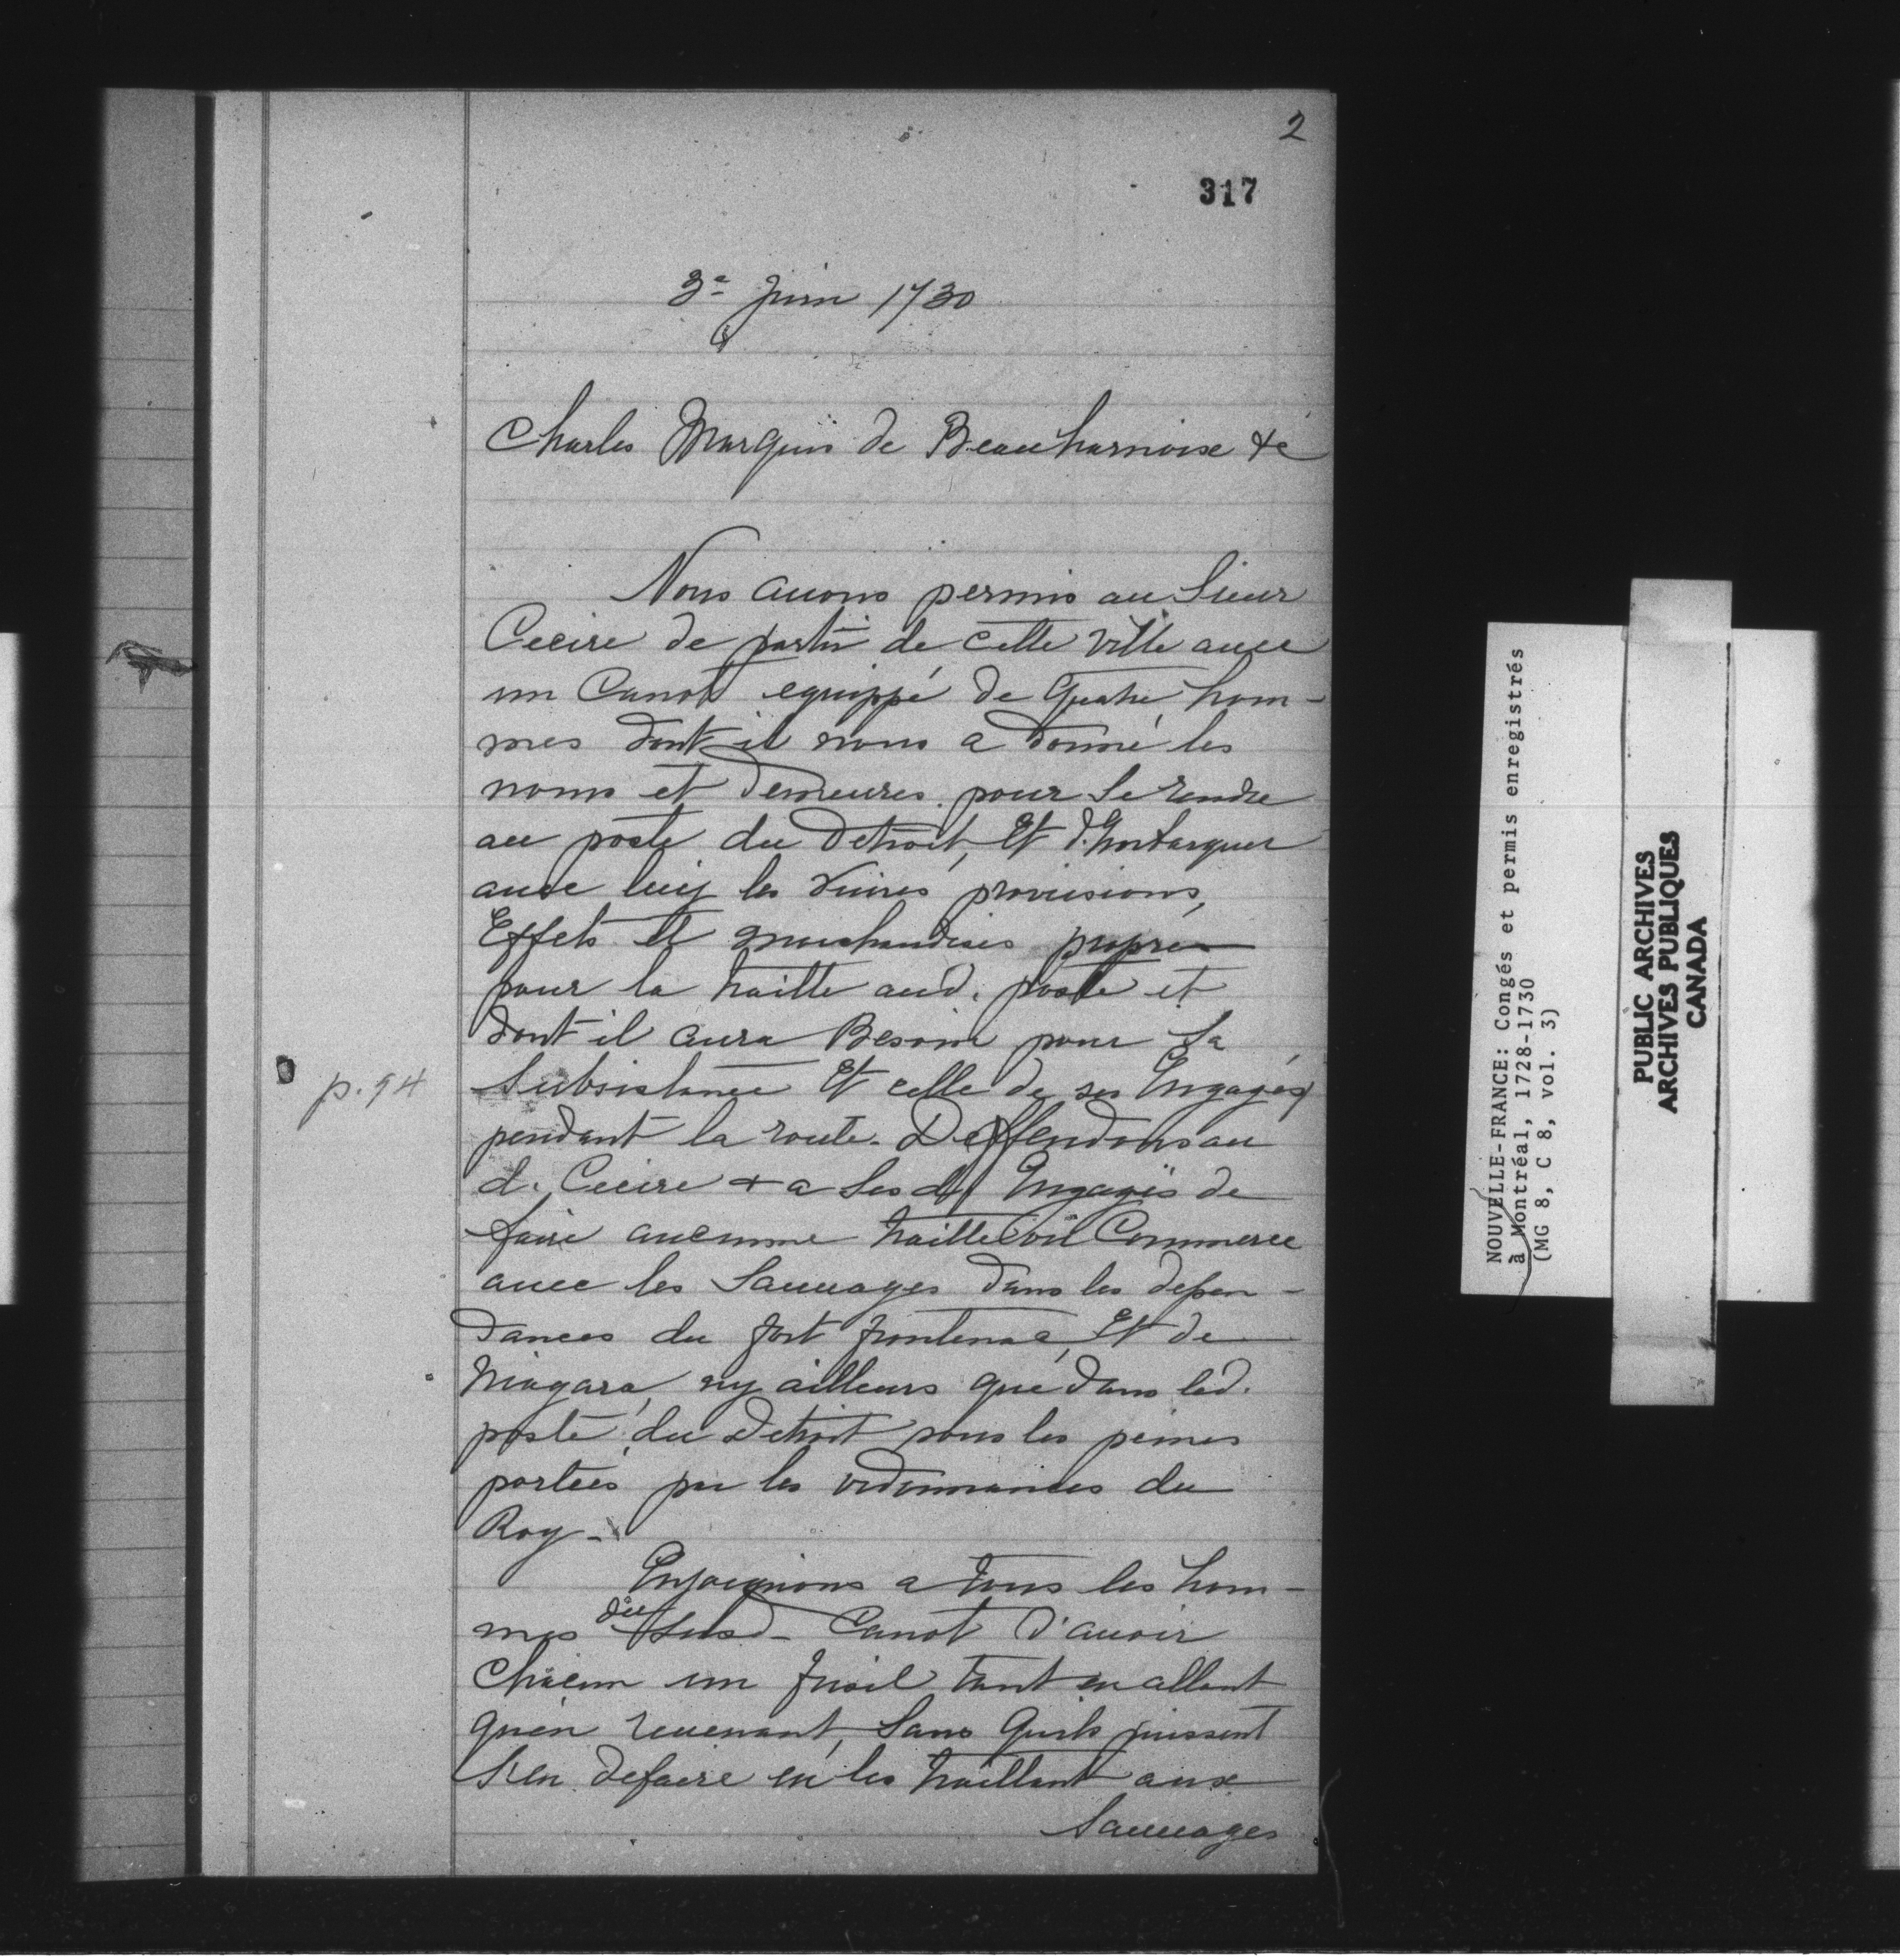 2
317
3e Juin 1730
Charles Marquis de Beauharnoise &c
Nous auons permis au Sieur
Cecire de partir de cette ville auec
un Canot equippé de Quatre hom-
mes dont il nous a donné les
noms et demeures pour Se rendre
au poste du Detroit, Et d'Embarquer
auec luy les viures provisions,
Effets et marchandises propres
pour la traitte aud. poste et
dont il aura Besoin pour Sa
Subsistance Et celle de ses Engagés
p. 94
pendant la route. Deffendons au
d. Cecire & a Ses d. Engagés de
faire aucunne traitte ou Commerce
auec les Sauuages dans les depen-
dances du fort frontenac, Et de
Niagara, ny ailleurs que dans led.
poste du Detroit sous les peines
portées par les ordonnances du
Roy-
Enjoignons a tous les hom-
mes du Susd- Canot d'auoir
Chacun un fusil tant en allant
qu'en reuenant, Sans Quils puissent
S'en defaire en les traittant aux
Sauuages
NOUVELLE-FRANCE: Congés et permis enregistrés
à Montréal, 1728-1730
(MG 8, C 8, vol. 3)
PUBLIC ARCHIVES
ARCHIVES PUBLIQUES
CANADA